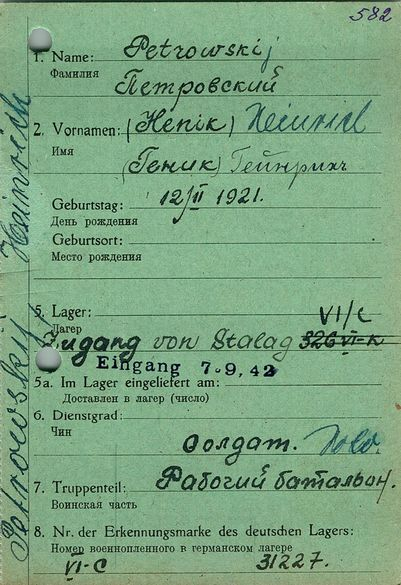 582
1. Name: Petrowskij
Фамилия Петровский
2. Vornamen: (Henik) Heinrich
Имя (Геник) Гейнрихъ
Geburtstag: 12/II 1921.
День рождения
Geburtsort:
Место рождения
5. Lager: VI/C
Лагер
Zugang von Stalag 326 VI-K
Eingang 7.9.42
5a. Im Lager eingeliefert am:
Доставлен в лагер (число)
6. Dienstgrad:
Чин Солдат. Sold.
7. Truppenteil: Рабочий батальон.
Воинская часть
8. Nr. der Erkennungsmarke des deutschen Lagers:
Номер военнопленного в германском лагере
VI-C 31227.
Petrowskij Heinrich